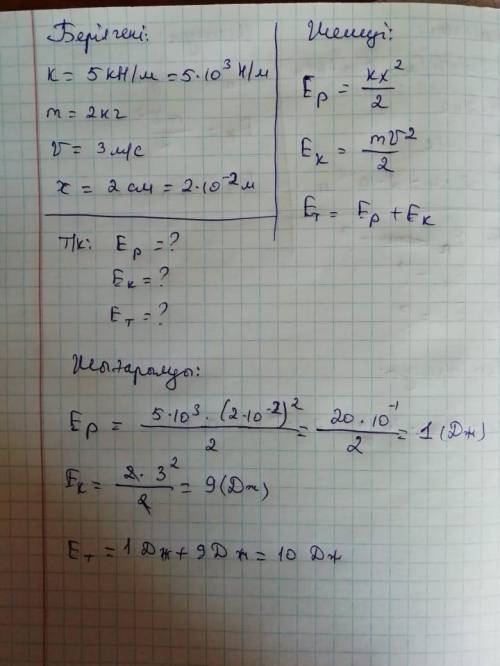 Берілгені:
k = 5 кН/м = 5·10³ Н/м
m = 2кг
v = 3 м/с
x = 2 см = 2·10⁻² м
Т/к: Eₚ = ?
Eₖ = ?
Eₜ = ?
Шешуі:
Eₚ = kx²/2
Eₖ = mv²/2
Eₜ = Eₚ + Eₖ
Шығарылуы:
Eₚ = 5·10³·(2·10⁻²)²/2 = 20·10⁻¹/2 = 1 (Дж)
Eₖ = 2·3²/2 = 9 (Дж)
Eₜ = 1 Дж + 9 Дж = 10 Дж